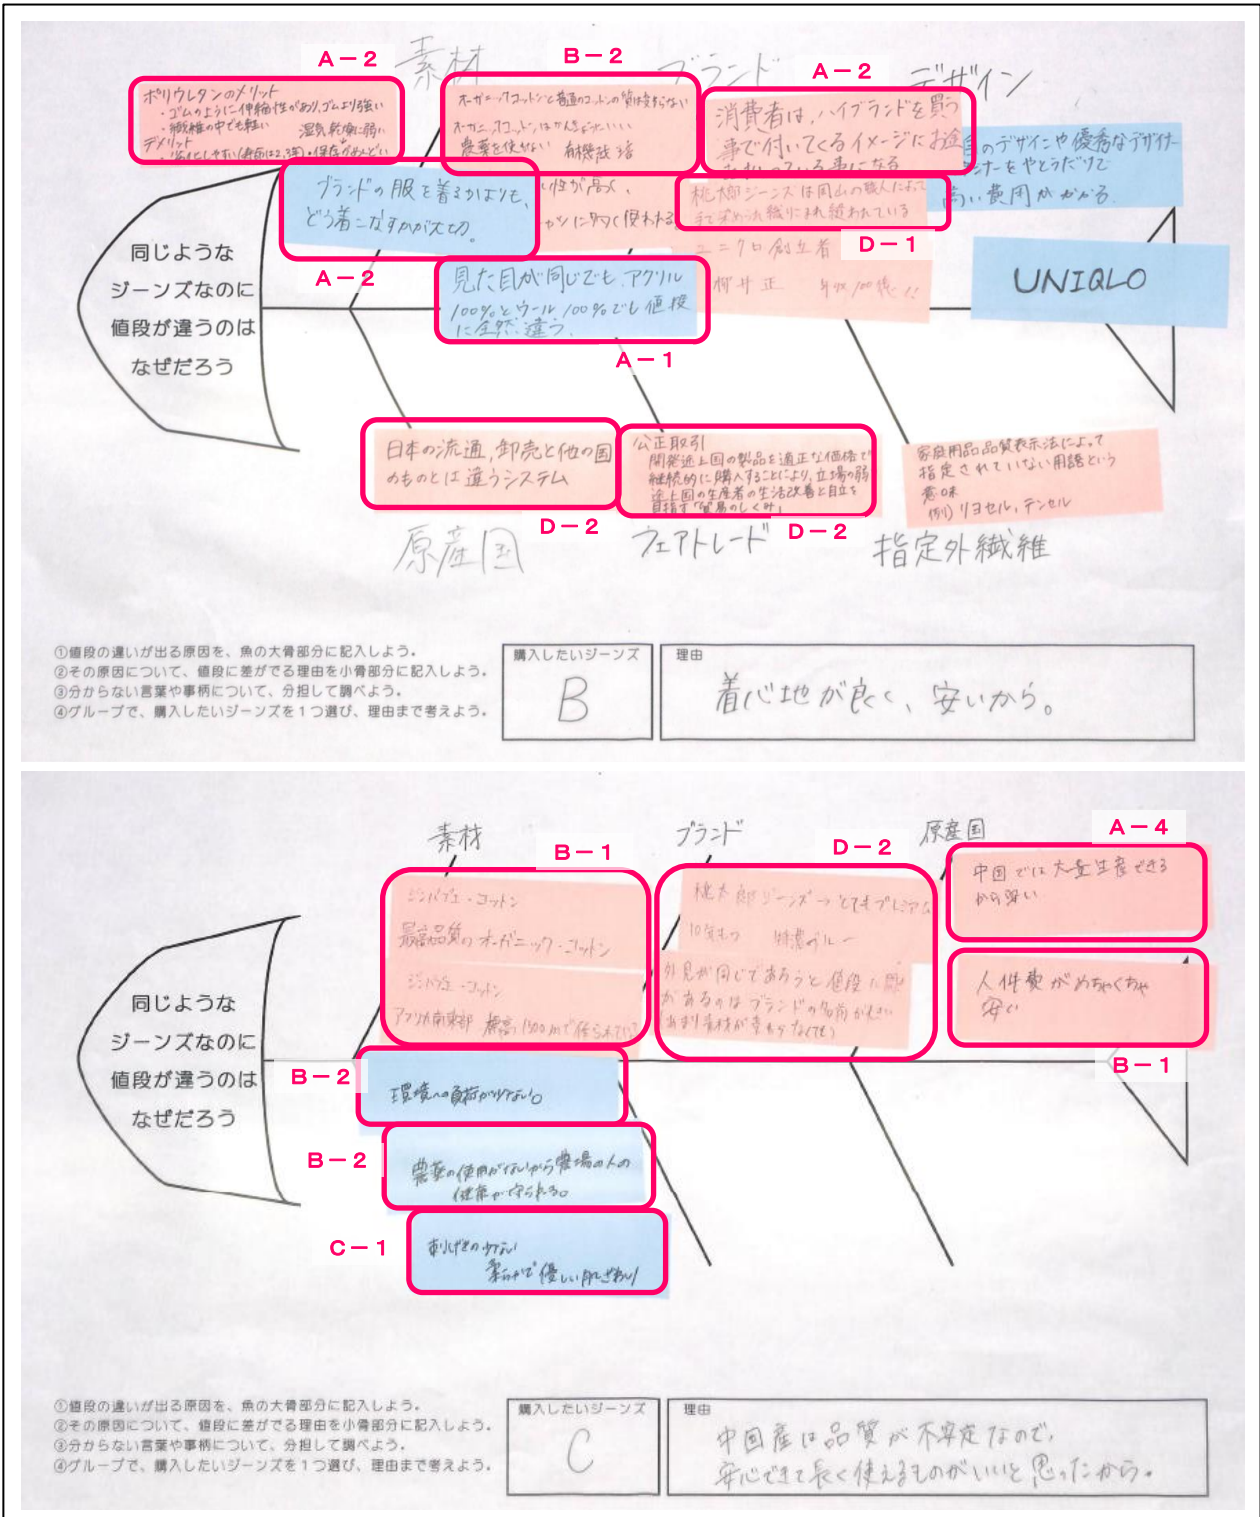 A－2
素材
B－2
ブランド
A－2
デザイン
ポリウレタンのメリット
・ゴムのように伸縮性があり、ゴムより強い
・繊維の中でも軽い
湿気乾燥に弱い
デメリット
オーガニックコットンと普通のコットンの質は変わらない
オーガニックコットンはかんきょうにいい
農薬を使わない
消費者は、ハイブランドを買う
事で付いてくるイメージにお金
のデザインや優秀なデザイナー
をやとうだけで
高い費用がかかる。
ブランドの服を着るかよりも、
どう着こなすかが大切。
性が高く、
桃太郎ジーンズは岡山の職人によって
手で染められ織りこまれ縫われている
D－1
ユニクロ創立者
柳井正
A－2
見た目が同じでも、アクリル
100%とウール100%でも値段
に全然違う。
A－1
UNIQLO
同じような
ジーンズなのに
値段が違うのは
なぜだろう
日本の流通、卸売と他の国
のものとは違うシステム
D－2
公正取引
開発途上国の製品を適正な価格で
継続的に購入することにより、立場の弱い
途上国の生産者の生活改善と自立を
目指す「貿易のしくみ」
D－2
家庭用品品質表示法によって
指定されていない用語という
意味
(例)リヨセル、テンセル
原産国
フェアトレード
指定外繊維
①値段の違いが出る原因を、魚の大骨部分に記入しよう。
②その原因について、値段に差がでる理由を小骨部分に記入しよう。
③分からない言葉や事柄について、分担して調べよう。
④グループで、購入したいジーンズを１つ選び、理由まで考えよう。
購入したいジーンズ
B
理由
着心地が良く、安いから。
素材
B－1
ブランド
D－2
原産国
A－4
ジンバブエ・コットン
最高品質のオーガニック・コットン
ジンバブエ・コットン
アフリカ南東部 標高1500mで作られている
桃太郎ジーンズ→とてもプレミアム
特濃ブルー
外見が同じであろうと値段に差
があるのはブランドの名前が大きい
(あまり素材が変わらなくても)
中国では大量生産できる
から安い
人件費がめちゃくちゃ
安い
B－1
同じような
ジーンズなのに
値段が違うのは
なぜだろう
B－2
環境への負荷が少ない。
B－2
農薬の使用がないから農場の人の
健康が守られる。
C－1
刺げきの少ない
柔らかで優しい肌ざわり
①値段の違いが出る原因を、魚の大骨部分に記入しよう。
②その原因について、値段に差がでる理由を小骨部分に記入しよう。
③分からない言葉や事柄について、分担して調べよう。
④グループで、購入したいジーンズを１つ選び、理由まで考えよう。
購入したいジーンズ
C
理由
中国産は品質が不安定なので、
安心できて長く使えるものがいいと思ったから。